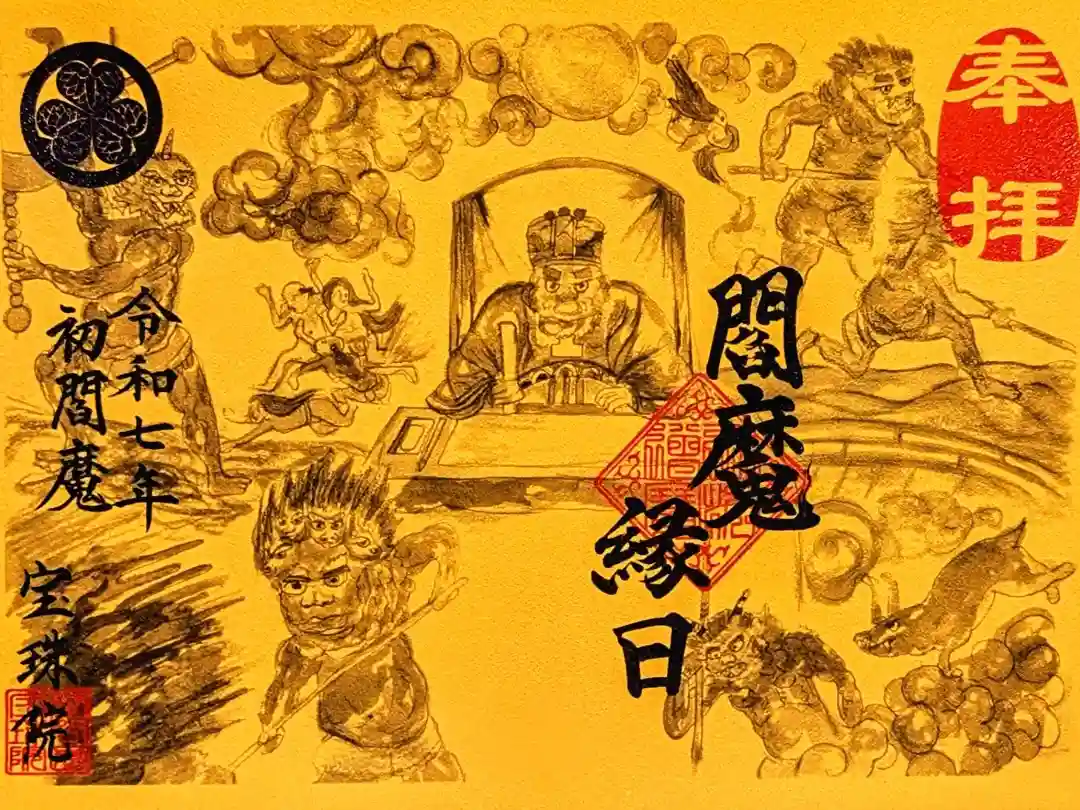 奉拝
閻魔
縁日
令和七年
初閻魔
宝珠院